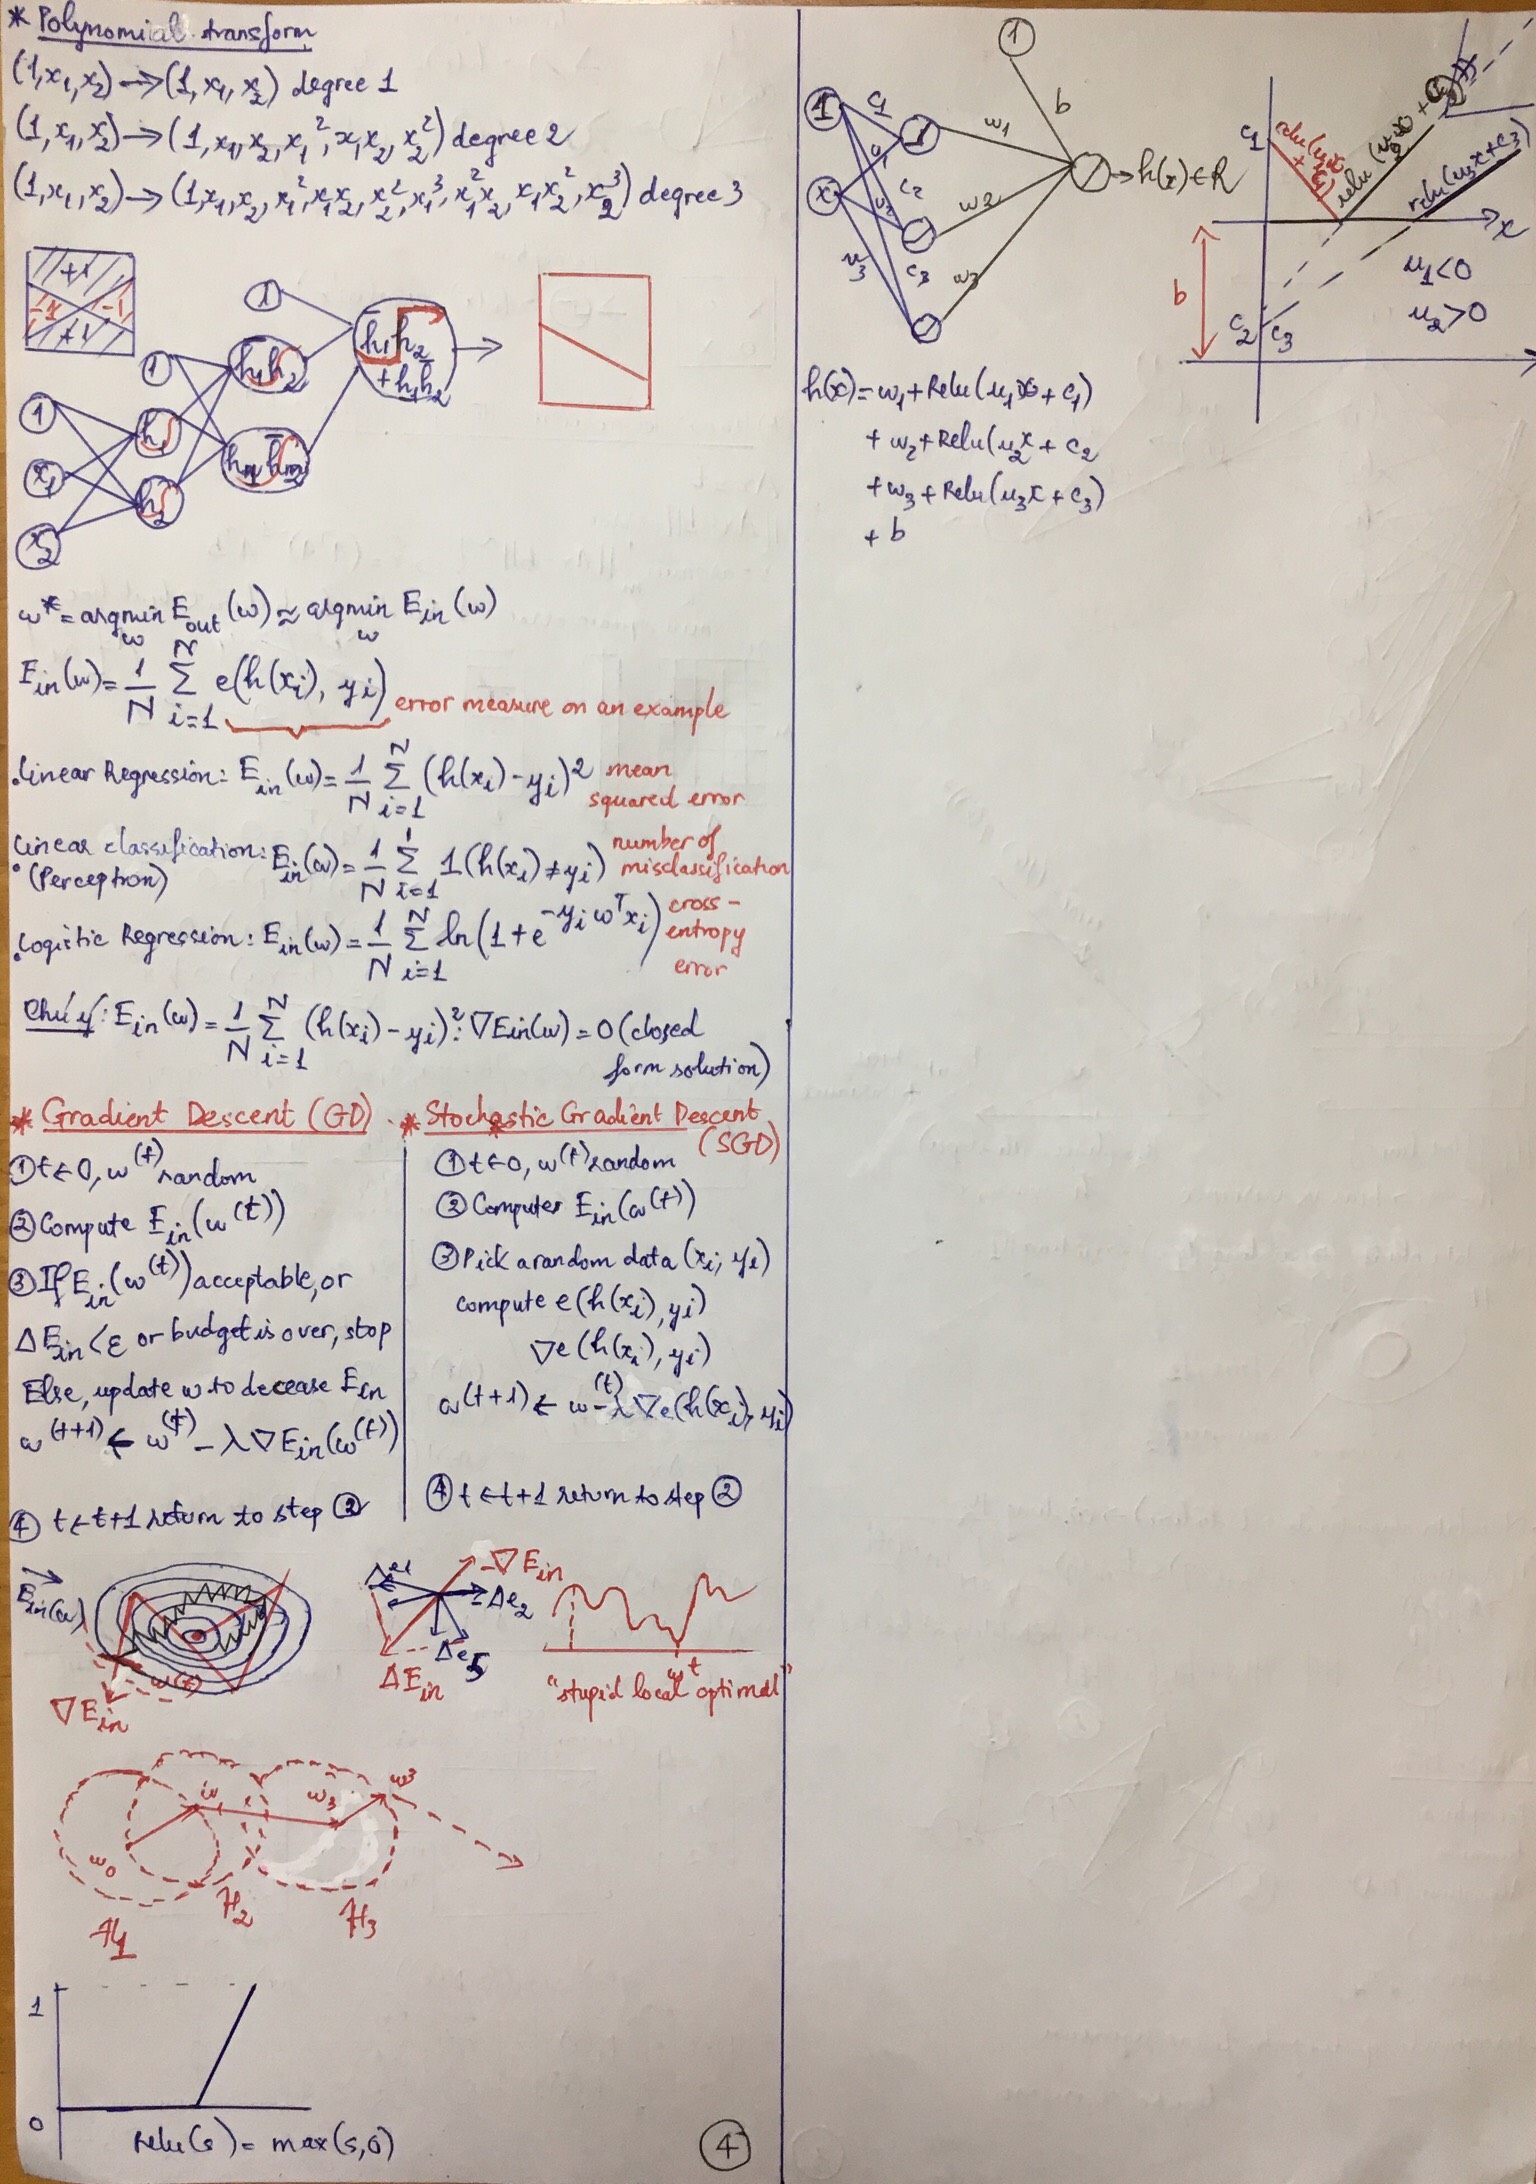 * Polynomial transform
(1,x₁,x₂)→(1,x₁,x₂) degree 1
(1,x₁,x₂)→(1,x₁,x₂,x₁²,x₁x₂,x₂²) degree 2
(1,x₁,x₂)→(1,x₁,x₂,x₁²,x₁x₂,x₂²,x₁³,x₁²x₂,x₁x₂²,x₂³) degree 3
+1
-1 -1
+1
1
h̄₁h₂
h̄₁h₂
+h₁h̄₂
1
1
h₁
x₁
h₂
x₂
w* = argmin E_out(w) ≈ argmin E_in(w)
w w
E_in(w) = 1/N Σ_{i=1}^N e(h(x_i), y_i) error measure on an example
.Linear Regression: E_in(w) = 1/N Σ_{i=1}^N (h(x_i)-y_i)² mean
squared error
Linear classification: E_in(w) = 1/N Σ_{i=1} 1(h(x_i) ≠ y_i) number of
misclassification
.(Perceptron)
.Logistic Regression: E_in(w) = 1/N Σ_{i=1}^N ln(1+e^{-y_i w^T x_i}) cross-
entropy
error
Chú ý: E_in(w) = 1/N Σ_{i=1}^N (h(x_i)-y_i)²: ∇E_in(w) = 0 (closed
form solution)
* Gradient Descent (GD)
① t ← 0, w^(t) random
② Compute E_in(w^(t))
③ If E_in(w^(t)) acceptable, or
ΔE_in < ε or budget is over, stop
Else, update w to decease E_in
w^(t+1) ← w^(t) - λ∇E_in(w^(t))
④ t ← t+1 return to step ②
* Stochastic Gradient Descent
(SGD)
① t ← 0, w^(t) random
② Computer E_in(w^(t))
③ Pick a random data (x_i, y_i)
compute e(h(x_i), y_i)
∇e(h(x_i), y_i)
w^(t+1) ← w^(t) - λ∇e(h(x_i), y_i)
④ t ← t+1 return to step ②
E_in(w)
w(t)
∇E_in
Δe₁
-∇E_in
Δe₂
Δe₅
ΔE_in
w^t
"stupid local optimal"
w₀
w₃
w³
H₁
H₂
H₃
1
0
relu(s) = max(s,0)
④
1
b
1
c₁
w₁
x
c₂
w₂
h(x) ∈ R
u₃
c₃
w₃
c₁
relu(u₁x + c₁)
relu(u₃x+c₃)
x
b
u₁<0
u₂>0
c₂ c₃
h(x) = w₁+Relu(u₁x + c₁)
+ w₂+Relu(u₂x + c₂
+ w₃ + Relu(u₃x + c₃)
+ b